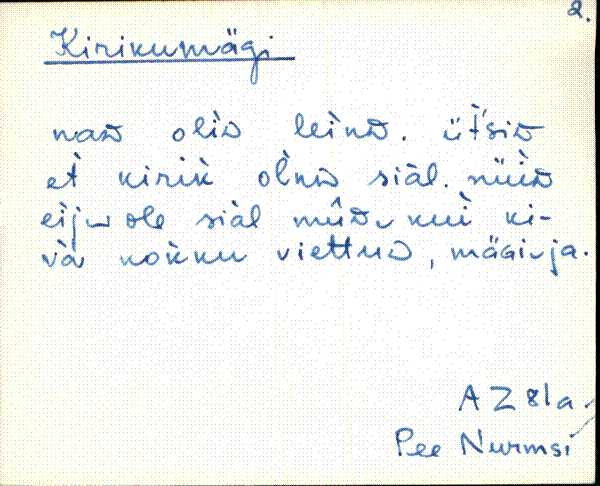 2.
Kirikumägi
nad̀ olìd leìnd. üt̀'sid
et̀ kirik̀ olǹd siàl. nüìd
eìj ̮ole siàl mûd ̮kuì ki-
và kok̀ku viet̀tud, mäGi ̮ja.
AZ 81a
Pee Nurmsi